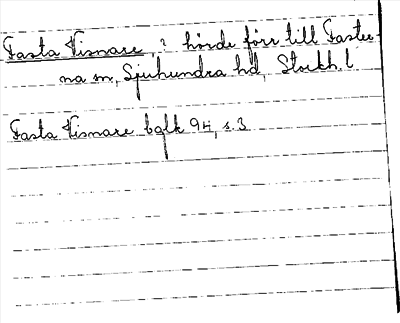 Fasta Vismare, ? hörde förr till Faster-
na sn, Sjuhundra hd, Stockh. l
Fasta Vismare bglk 94, s. 3